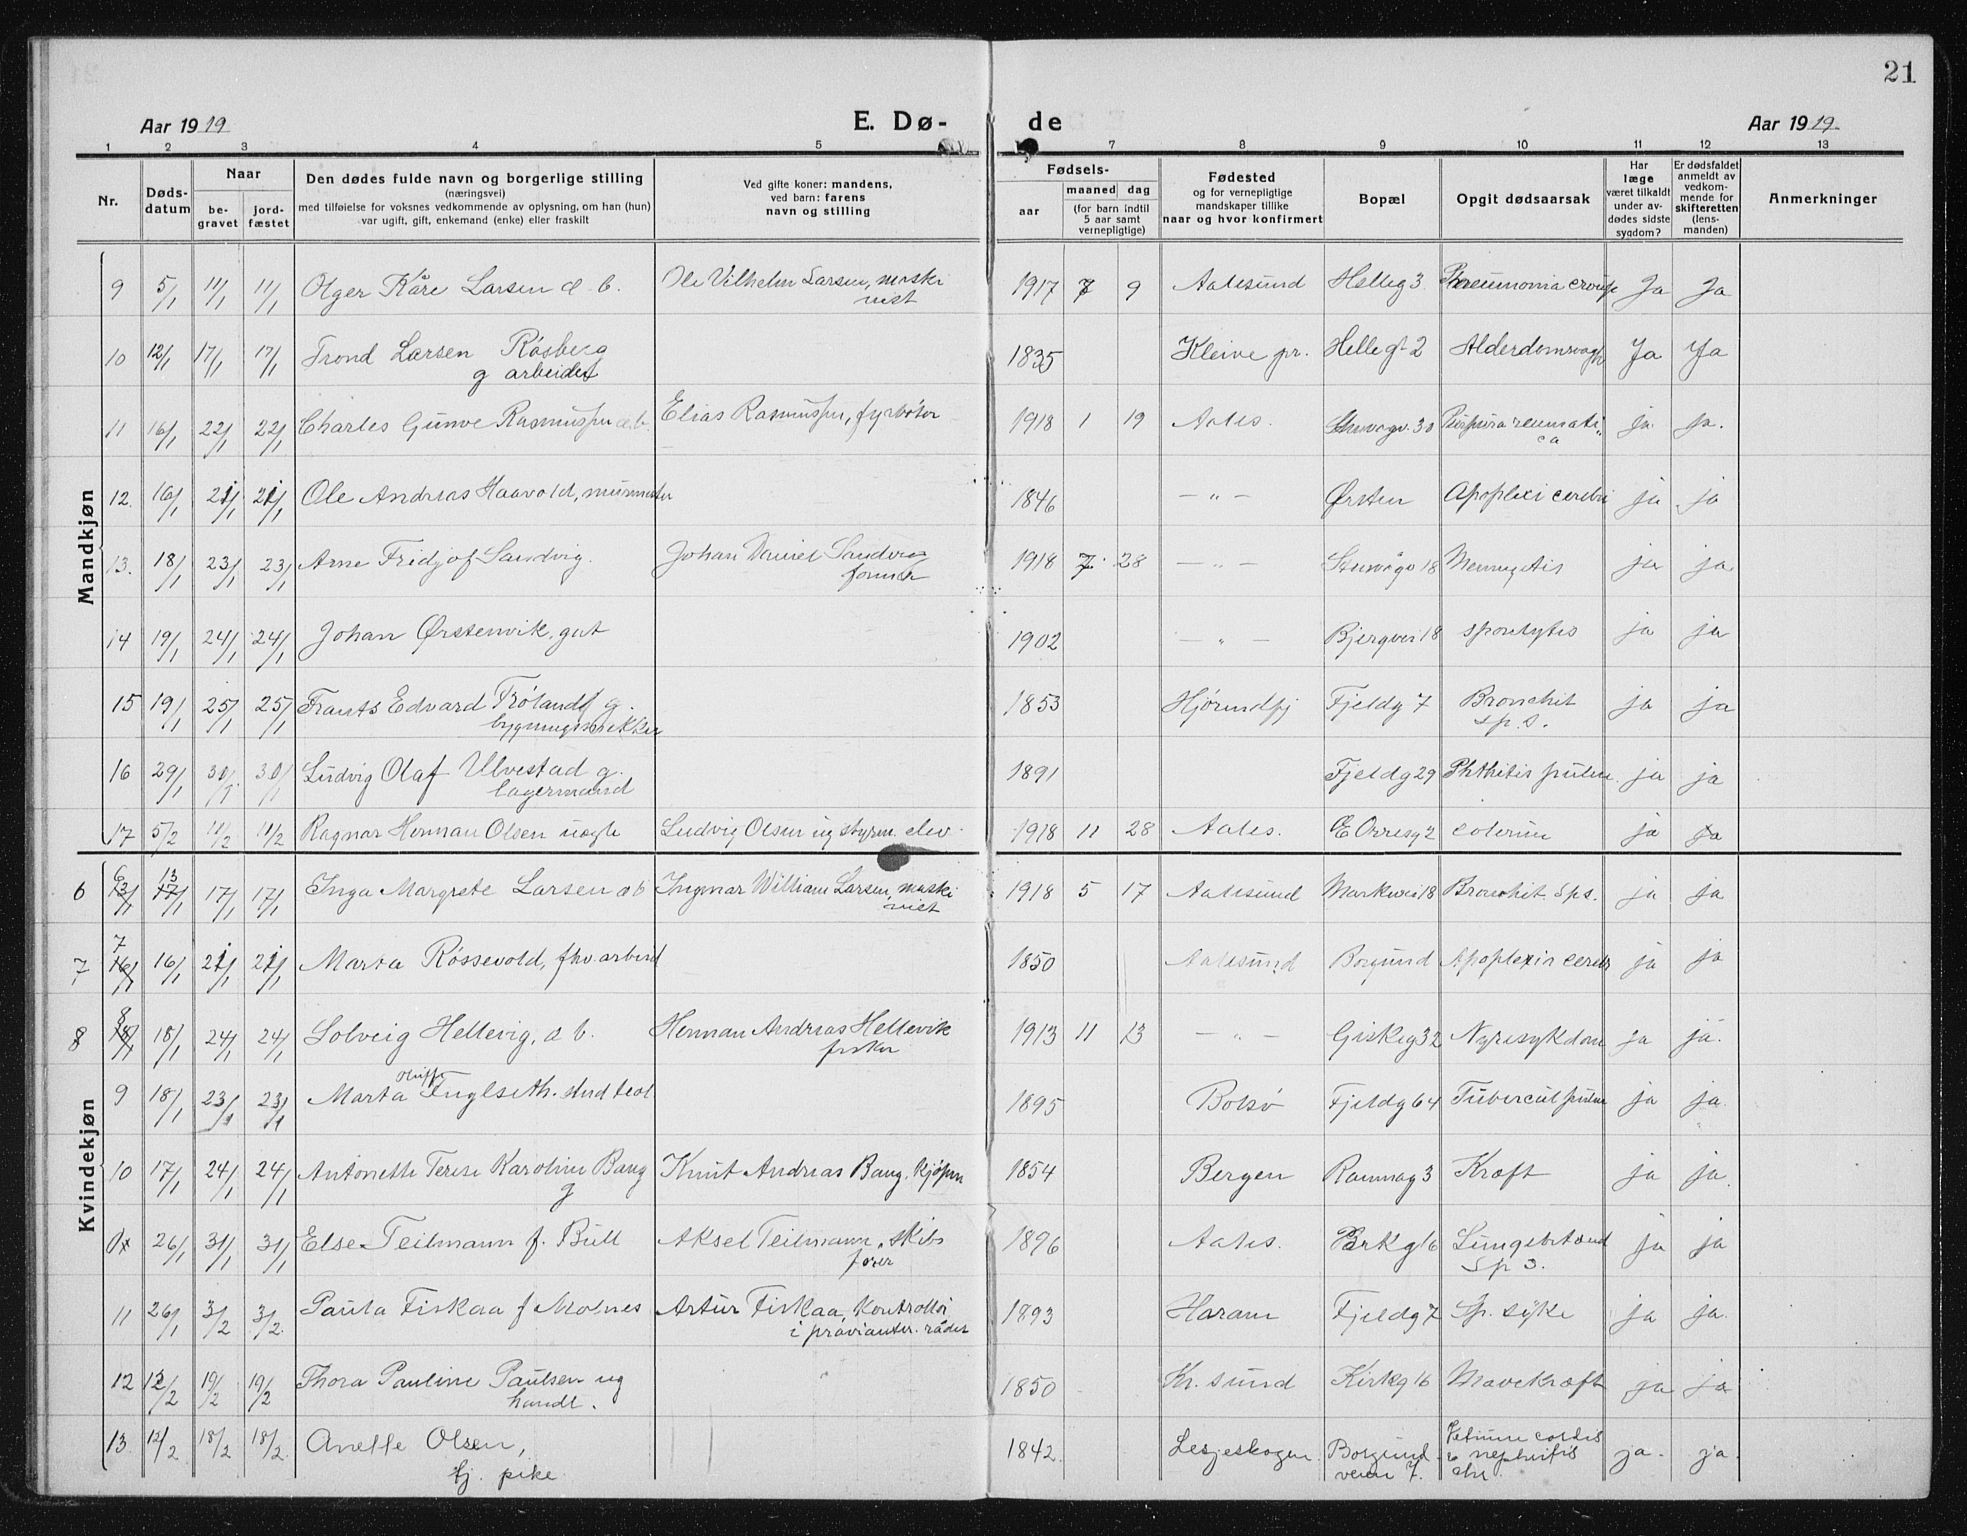 21
Aar 1919
E. Dø-
de
Aar 1919.
1 2 3 4 5 7 8 9 10 11 12 13
Nr.
Døds-
datum
Naar
be-
gravet
jord-
fæstet
Den dødes fulde navn og borgerlige stilling
(næringsvei)
med tilføielse for voksnes vedkommende av oplysning, om han (hun)
var ugift, gift, enkemand (enke) eller fraskilt
Ved gifte koner: mandens,
ved barn: farens
navn og stilling
Fødsels-
aar
maaned dag
(for barn indtil
5 aar samt
vernepligtige)
Fødested
og for vernepligtige
mandskaper tillike
naar og hvor konfirmert
Bopæl
Opgit dødsaarsak
Har
læge
været tilkaldt
under av-
dødes sidste
sygdom?
Er dødsfaldet
anmeldt av
vedkom-
mende for
skifteretten
(lens-
manden)
Anmerkninger
Mandkjøn
9 5/1 11/1 11/1 Olger Kåre Larsen d. b. Ole Vilhelm Larsen, maski 1917 7 9 Aalesund Helleg 3 Pneumonia croup Ja Ja
nist
10 12/1 17/1 17/1 Trond Larsen Røsberg 1835 Kleive pr. Hellegt 2 Ja Ja
g arbeider
11 16/1 22/1 22/1 Charles Gunve Rasmussen d.b. Elias Rasmussen, fyrbøter 1918 1 19 Aales. 30 Purpura reumati ja ja.
ca
12. 16/1 21/1 21/1 Ole Andreas Haavold, murmester 1846 — " — Ørsten Apoplexi cerebri ja ja
13. 18/1 23/1 23/1 Arne Fridjof Sandvig. Johan Daniel Sandvig 1918 7. 28 — " — 18 ja ja
former
14 19/1 24/1 24/1 Johan Ørstenvik, gut 1902 — " — Bjergvei 18 ja ja
15 19/1 25/1 25/1 Frants Edvard g. 1853 Hjørundfj Fjeldg 7 Bronchit ja ja
bygningssnekker sp. s.
16 29/1 30/1 30/1 Ludvig Olaf Ulvestad g. 1891 Fjeldg 29 Phthisis pulm ja ja
lagermand
17 5/2 11/2 11/2 Ragnar Herman Olsen uegte Ludvig Olsen ug styrm. elev. 1918 11 28 Aales. Ø Orresg 2 ja ja
Kvindekjøn
6 6 13/1 13 17/1 17/1 17/1 Inga Margrete Larsen d b Ingmar William Larsen, maski 1918 5 17 Aalesund Markvei 18 Bronchit. sps. ja ja
nist
7 7 16/1 16/1 21/1 21/1 Marta Røssevold, fhv. arbeid 1850 Aalesund Borgund Apoplexia cerebr ja ja
8 8 18/1 18/1 24/1 24/1 Solveig Hellevig, d b. Herman Andreas Hellevik 1913 11 13 — " — Giskeg 32 Nyresykdom ja ja.
fisker
9 18/1 23/1 23/1 Marta Fuglseth. stud teol 1895 Bolsø Fjeldg 64 Tubercul pulm ja ja.
10 17/1 24/1 24/1 Antonette Terese Karoline Bang Knut Andreas Bang. kjøpm 1854 Bergen Rønneg 3 Kræft ja ja.
g
26/1 31/1 31/1 Else Teilmann f. Bull Aksel Teilmann, skibs 1896 Aales. 16 Lungebetænd ja ja
fører sp s.
11 26/1 3/2 3/2 Paula Fiskaa f Molnes Artur Fiskaa, kontrollør 1893 Haram Fjeldg 7 Sp. syke ja ja.
i provianter. rådet
12 12/2 19/2 19/2 Thora Pauline Paulsen ug 1850 Kr. sund Kirkg 16 Mavekræft ja ja
handl.
13. 12/2 18/2 18/2 Anette Olsen, 1842. Lesjeskogen Borgund cordis ja. ja.
tj. pike veien 7. nephritis
chr.